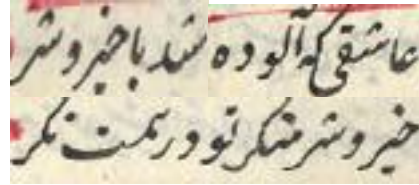 عاشقی که آلوده شد با خیر و شر
خیر و شر منگر تو در همت نگر